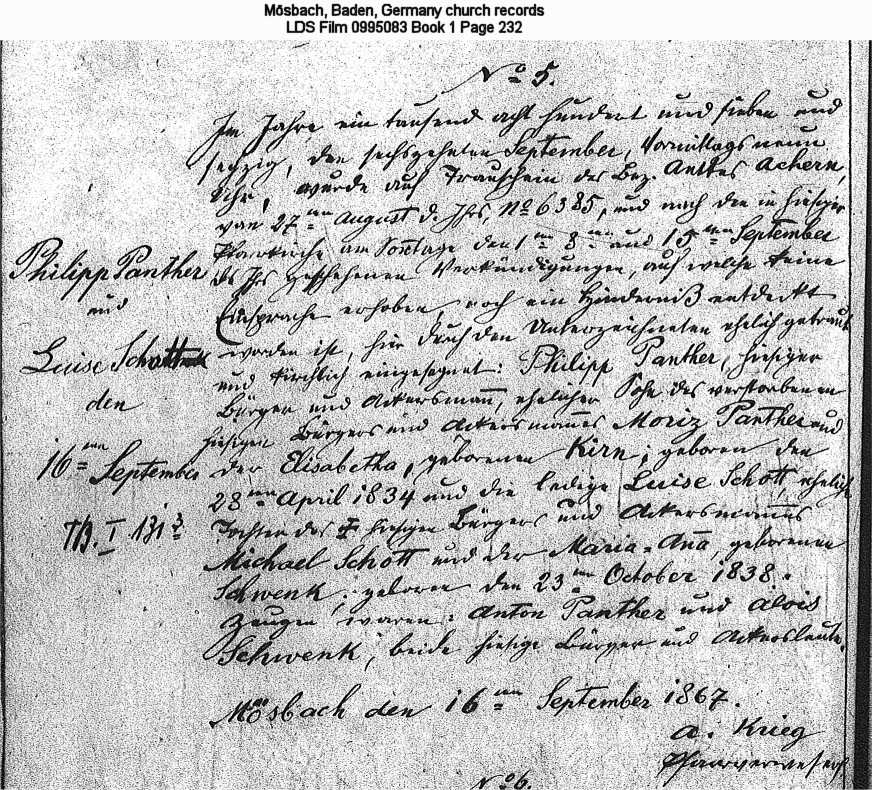 Mösbach, Baden, Germany church records
LDS Film 0995083 Book 1 Page 232
No 5.
Im Jahre ein tausend acht hundert und sieben und
sechzig, den sechszehnten September, Vormittags neun
Uhr, wurde auf Trauschein des Bez. Amtes Achern,
von 27ten August d. Jhrs, No 6385, und nach den in hiesiger
Pfarrkirche am Sontage den 1ten 8ten und 15ten September
ds Jhs geschehenen Verkündigungen, auf welche keine
Einsprache erhoben, noch ein Hinderniß entdeckt
worden ist, hier durch den Unterzeichneten ehelich getraut
und kirchlich eingesegnet: Philipp Panther, hiesiger
Bürger und Ackersmann, ehelicher Sohn des verstorbenen
hiesigen Bürgers und Ackersmannes Moriz Panther und
der Elisabetha, geborenen Kirn; geboren den
28ten April 1834 und die ledige Luise Schott, eheliche
Tochter des hiesigen Bürgers und Ackersmannes
Michael Schott und der Maria-Anna, geborenen
Schwenk; geboren den 23ten October 1838.
Zeugen waren: Anton Panther und Alois
Schwenk, beide hiesige Bürger und Ackersleute.
Mösbach den 16ten September 1867.
A. Krieg
Pfarrverweser
Philipp Panther
und
Luise Schott
den
16ten September
TB. I 131 3
No 6.